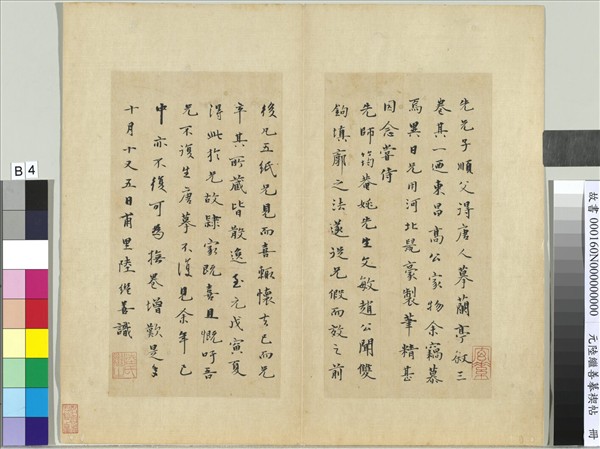 先兄子順父得唐人摹蘭亭敘三
卷其一迺東昌高公家物余竊慕
焉異日兄用河北鼠豪製筆精甚
因念嘗侍
先師筠菴姚先生文敏趙公聞雙
鉤填廓之法遂從兄假而效之前
後凡五紙兄見而喜輒懷去已而兄
卒其所藏皆散逸至元戊寅夏
得此於兄故隸家既喜且慨吁吾
兄不復生唐摹不復見余年已
中亦不復可為撫卷增歎是歲
十月十又五日甫里陸繼善識
故書 000160N000000000 元陸繼善摹禊帖 冊
B 4